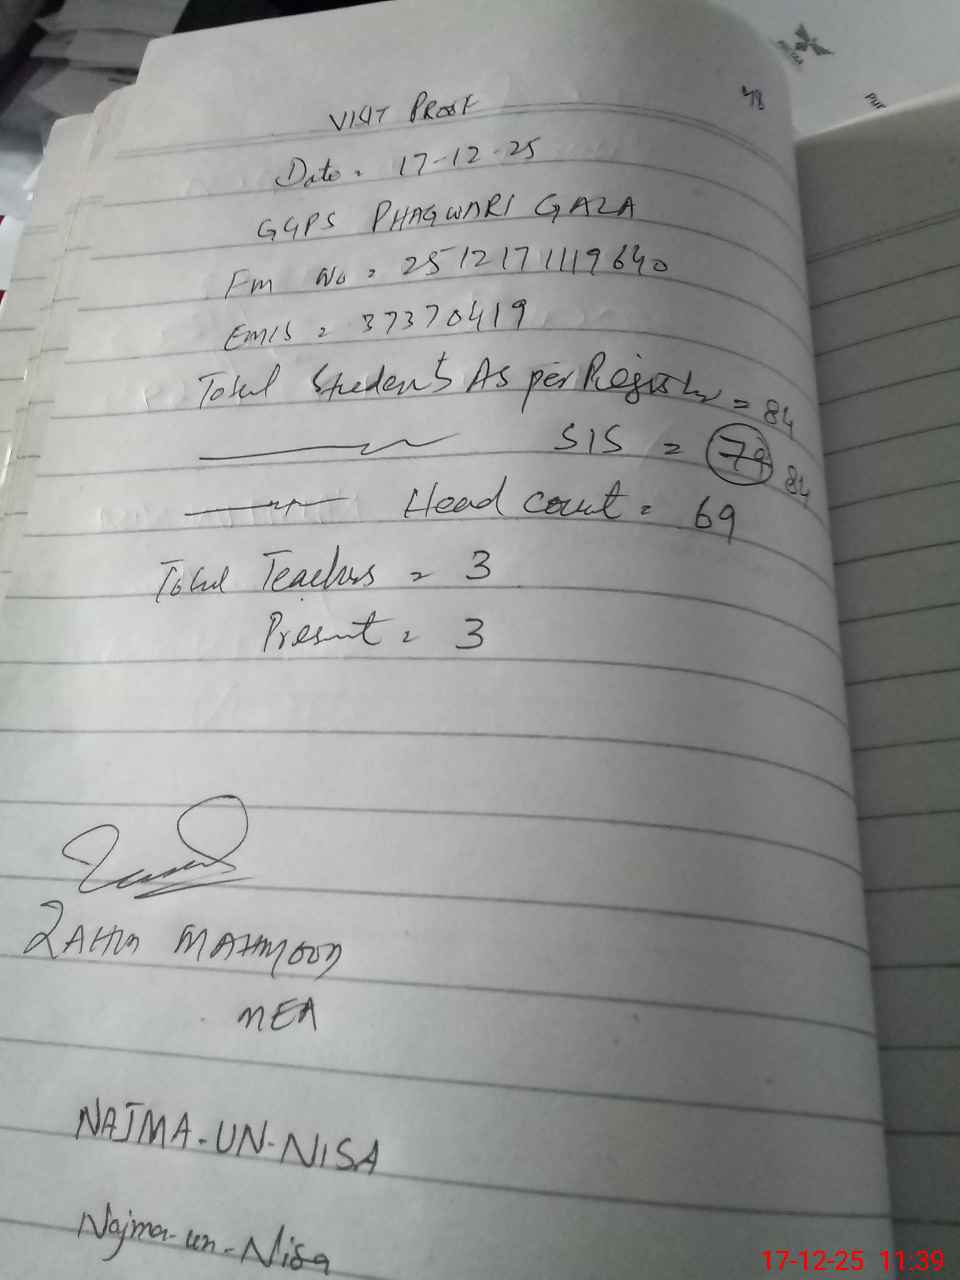 48
VISIT PROOF
Date = 17-12-25
GGPS PHAGWARI GALA
Fm No = 2512171119640
EMIS = 37370419
Total Students As per Register = 84
SIS = 79 84
Head count = 69
Total Teachers = 3
Present = 3
MAHMOOD
MEA
NAJMA-UN-NISA
Najma-un-Nisa
17-12-25 11:39